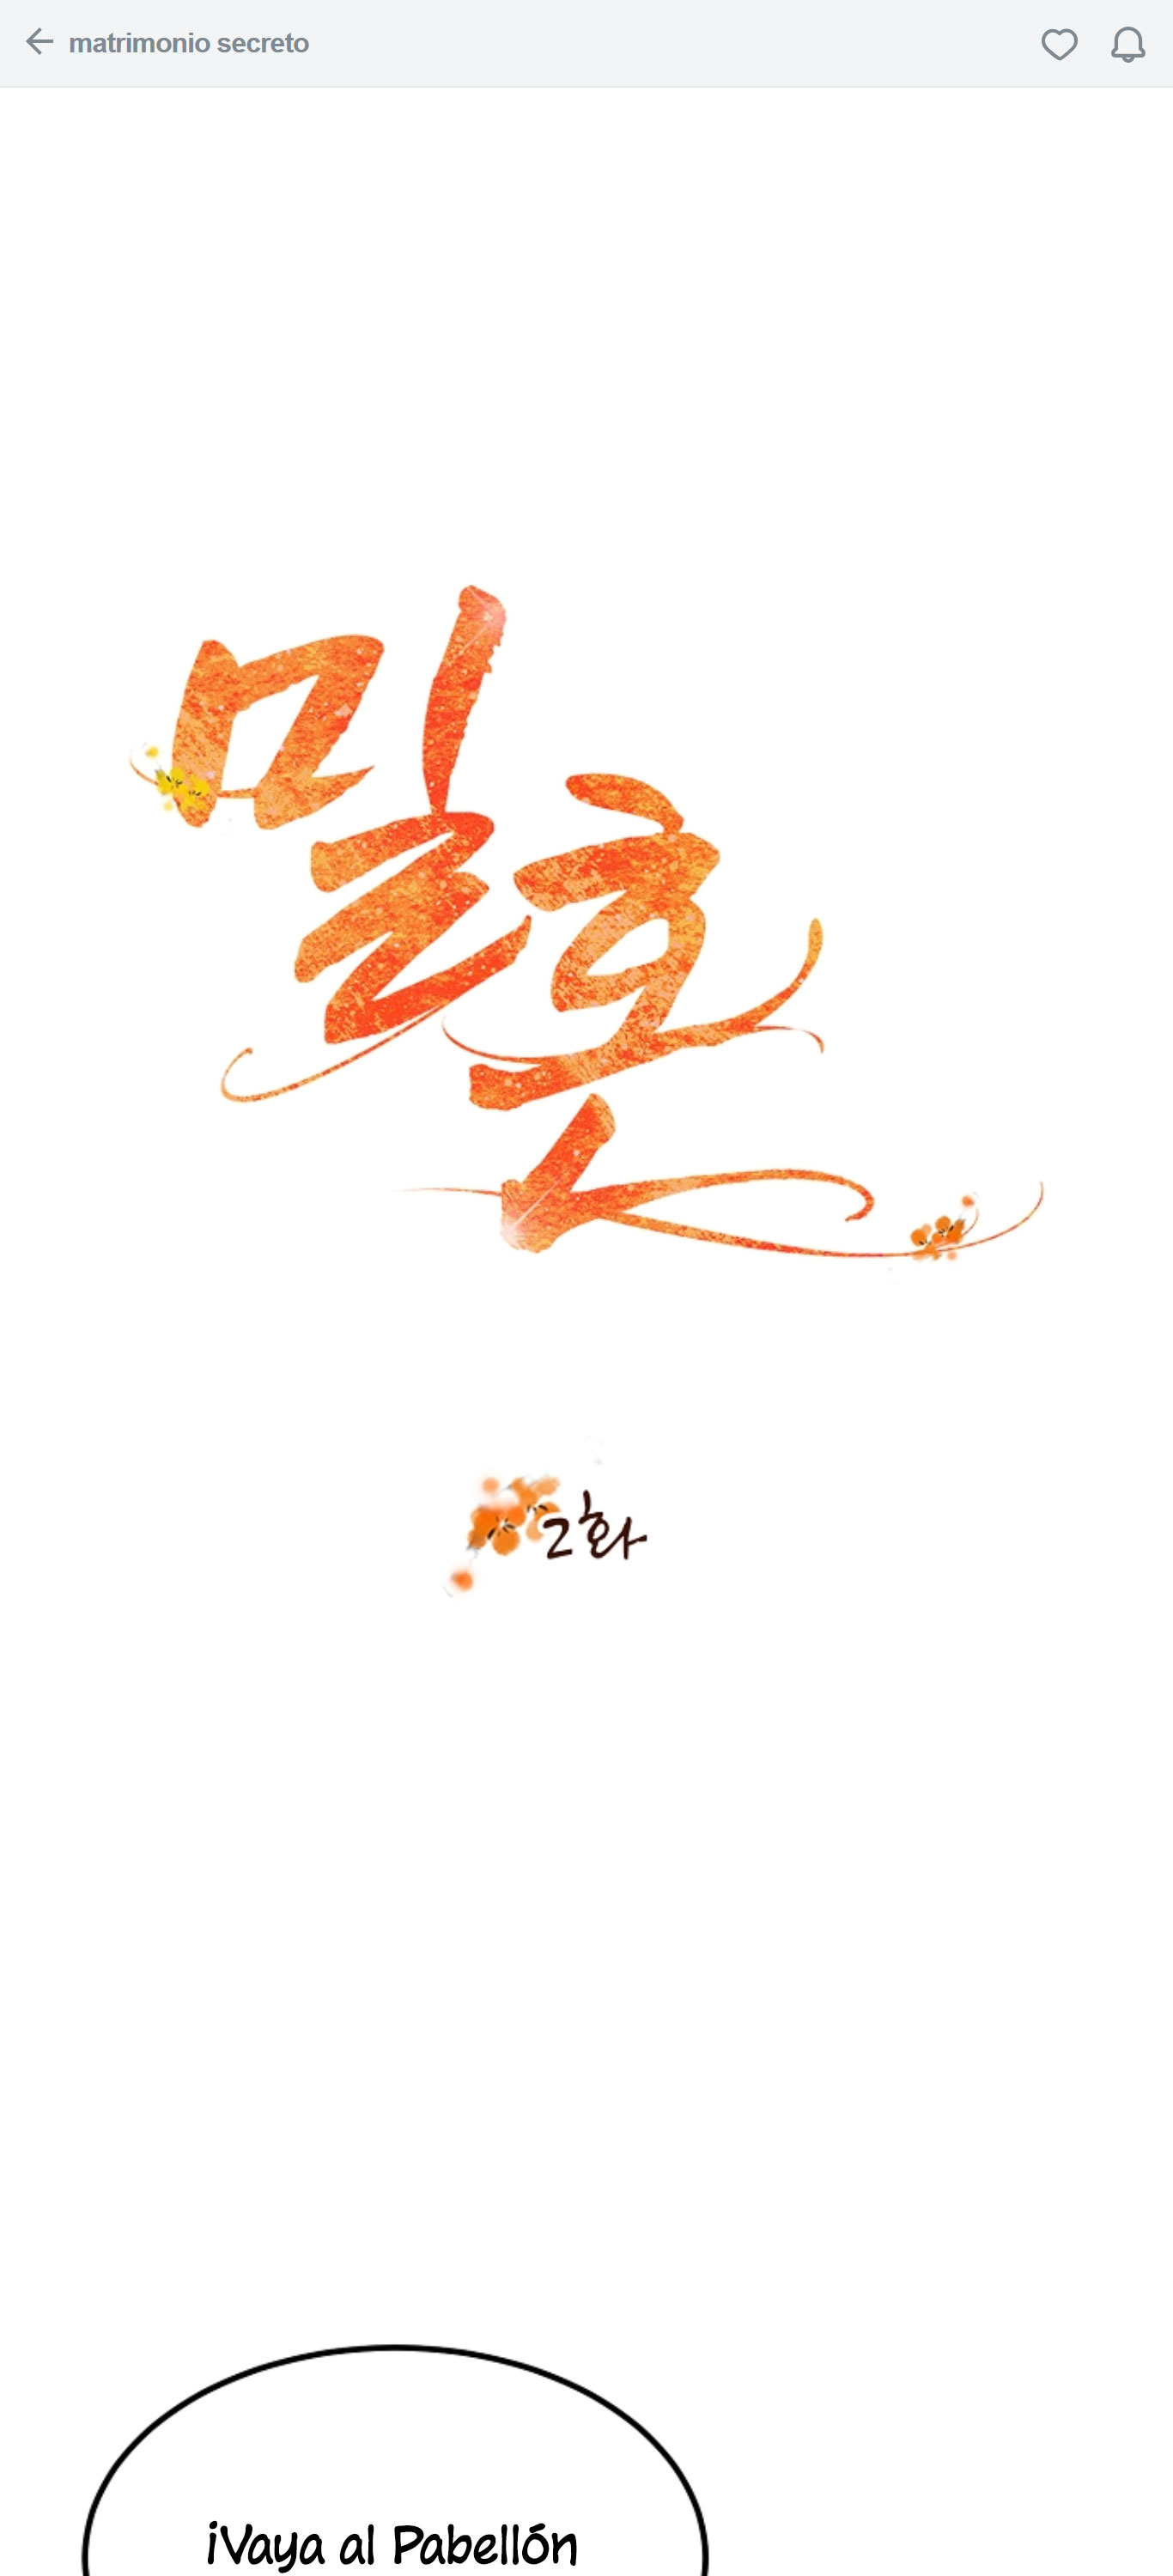 matrimonio secreto
밀혼
2화
¡Vaya al Pabellón